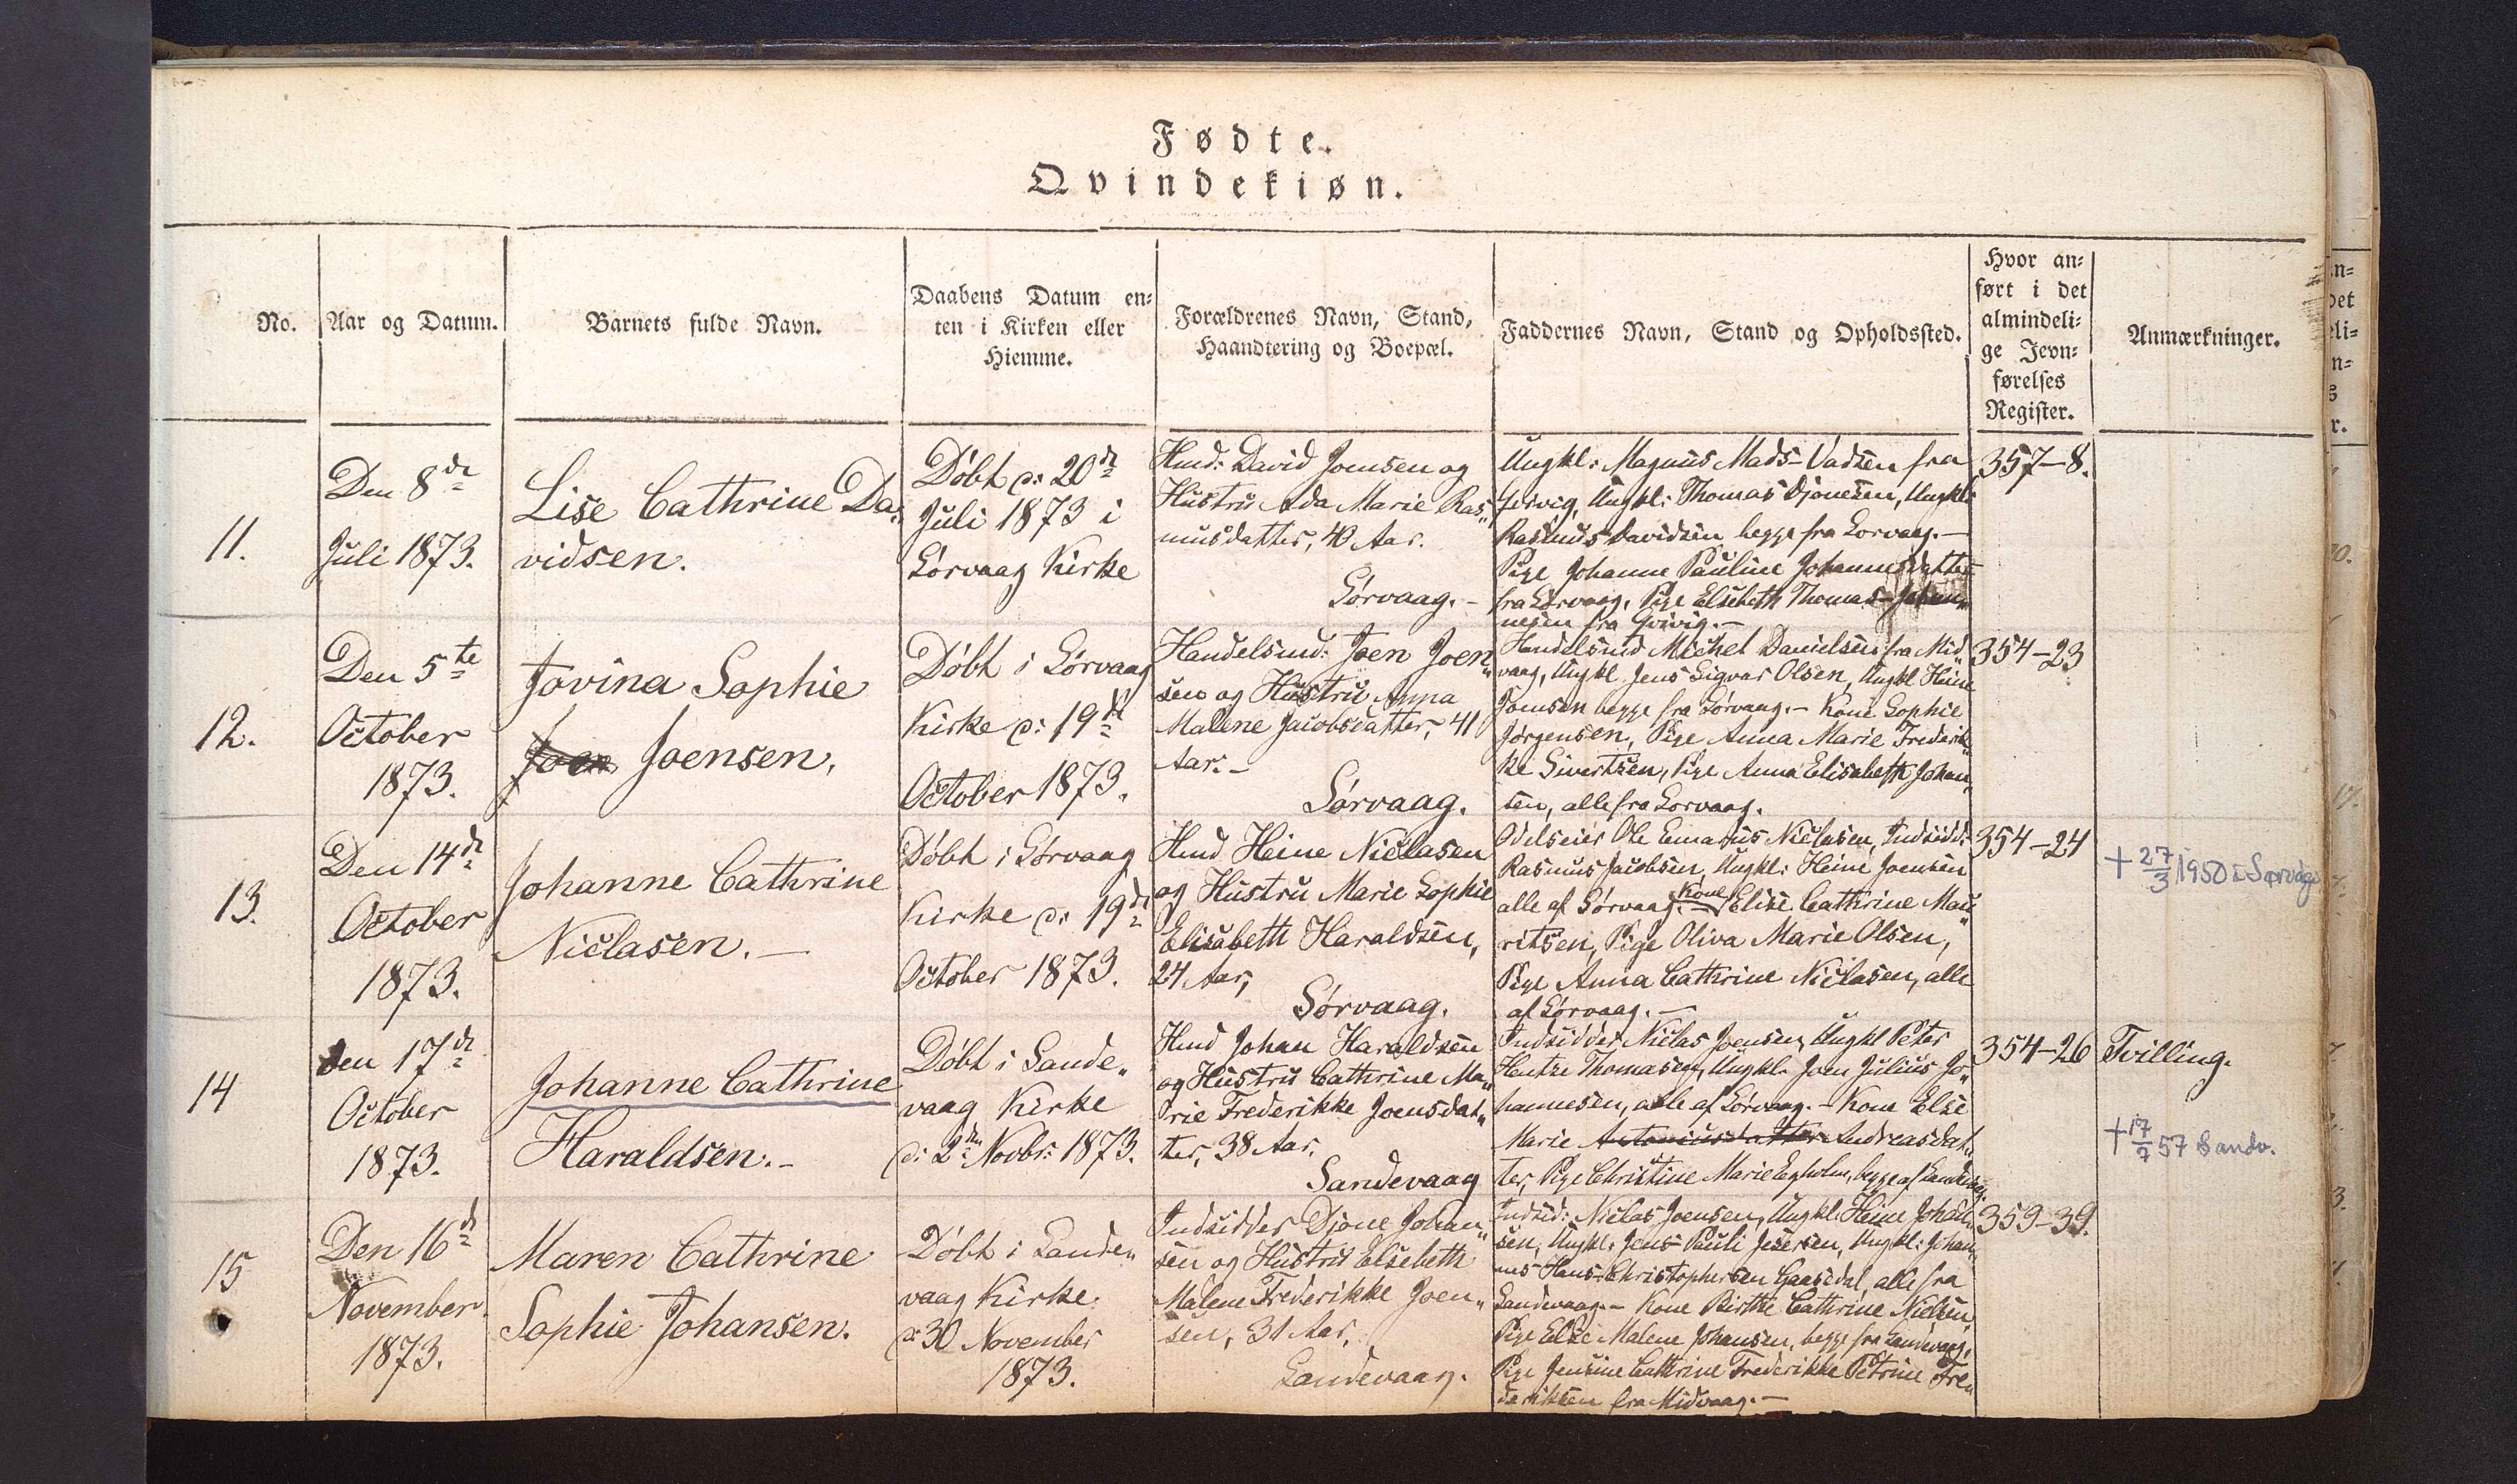 Fødte.
Qvindekiøn.
No.
Aar og Datum.
Barnets fulde Navn.
Daabens Datum en-
ten i Kirken eller
Hiemme.
Forældrenes Navn, Stand,
Haandtering og Boepæl.
Faddernes Navn, Stand og Opholdssted.
Hvor an-
ført i det
almindeli-
ge Jevn-
førelses
Register.
Anmærkninger.
11.
Den 8de
Juli 1873.
Lise Cathrine Da-
vidsen.
Döbt d: 20de
Juli 1873 i
Sörvaag Kirke
Hmd: David Joensen og
Hustru Ada Marie Ras„
musdatter, 40 Aar.
Sörvaag.-
Ungkl: Magnus Mads-Vadsen fra
Qvivig, Ungkl: Thomas Djonesen, Ungkl:
Rasmus Davidsen begge fra Sorvaag.-
Pige Johanne Pauline Johannesdatter
fra Sörvaag, Pige Elsebeth Thomas-Johan„
nesen fra Qvivig.-
357-8.
12.
Den 5te
October
1873.
Jovina Sophie
Joen Joensen.
Döbt i Sörvaag
Kirke d: 19de
October 1873.
Handelsmd: Joen Joen„
sen og Hustru Anna
Malene Jacobsdatter, 41
Aar.-
Sörvaag.
Handelsmd Michel Danielsen fra Mid„
vaag, Ungkl Jens Sigvar Olsen, Ungkl Heine
Joensen begge fra Sörvaag.- Kone Sophie
Jörgensen, Pige Anna Marie Frederik„
ke Sivertsen, Pige Anna Elisabeth Johan„
sen, alle fra Sorvaag.
354-23
13.
Den 14de
October
1873.
Johanne Cathrine
Niclasen.-
Döbt i Sörvaag
Kirke d: 19de
October 1873.
Hmd Heine Niclasen
og Hustru Marie Sophie
Elisabeth Haraldsen,
24 Aar,
Sörvaag.
Odelseier Ole Enmarius Niclasen, Indsidd:
Rasmus Jacobsen, Ungkl: Heine Joensen
alle af Sörvaag.- Kone Elise Cathrine Mau„
ritsen, Pige Oliva Marie Olsen,
Pige Anna Cathrine Niclasen, alle
af Sörvaag.-
354-24
+ 27/3 1950 i Sørvág
14
Den 17de
October
1873.
Johanne Cathrine
Haraldsen.-
Döbt i Sande„
vaag Kirke
d: 2den Novbr: 1873.
Hmd Johan Haraldsen
og Hustru Cathrine Ma„
rie Frederikke Joensdat„
ter, 38 Aar.
Sandevaag
Indsidder Niclas Joensen, Ungkl Peter
Hentze Thomasen, Ungkl: Joen Julius Jo„
hannesen, alle af Sörvaag.- Kone Else
Marie Antoniusdatter Andreasdat„
ter, Pige Christine Marie Egholm, begge af Sandevaag.
354-26
Tvilling.
+ 17/7 57 Sandv.
15
Den 16de
November
1873.
Maren Cathrine
Sophie Johansen.
Döbt i Sande„
vaag Kirke
d: 30 November
1873.
Indsidder Djone Johan„
sen og Hustru Elsebeth
Malene Frederikke Joen„
sen, 31 Aar,
Sandevaag.
Indsid: Niclas Joensen, Ungkl: Heine Johan„
sen, Ungkl: Jens Pauli Jesersen, Ungkl: Johan„
nes Hans Christophersen Gaasedal, alle fra
Sandevaag.- Kone Birthe Cathrine Nielsen,
Pige Else Malene Johansen, begge fra Sandevaag,
Pige Jensine Cathrine Frederikke Petrine Fre„
deriksen fra Midvaag.-
359-39.